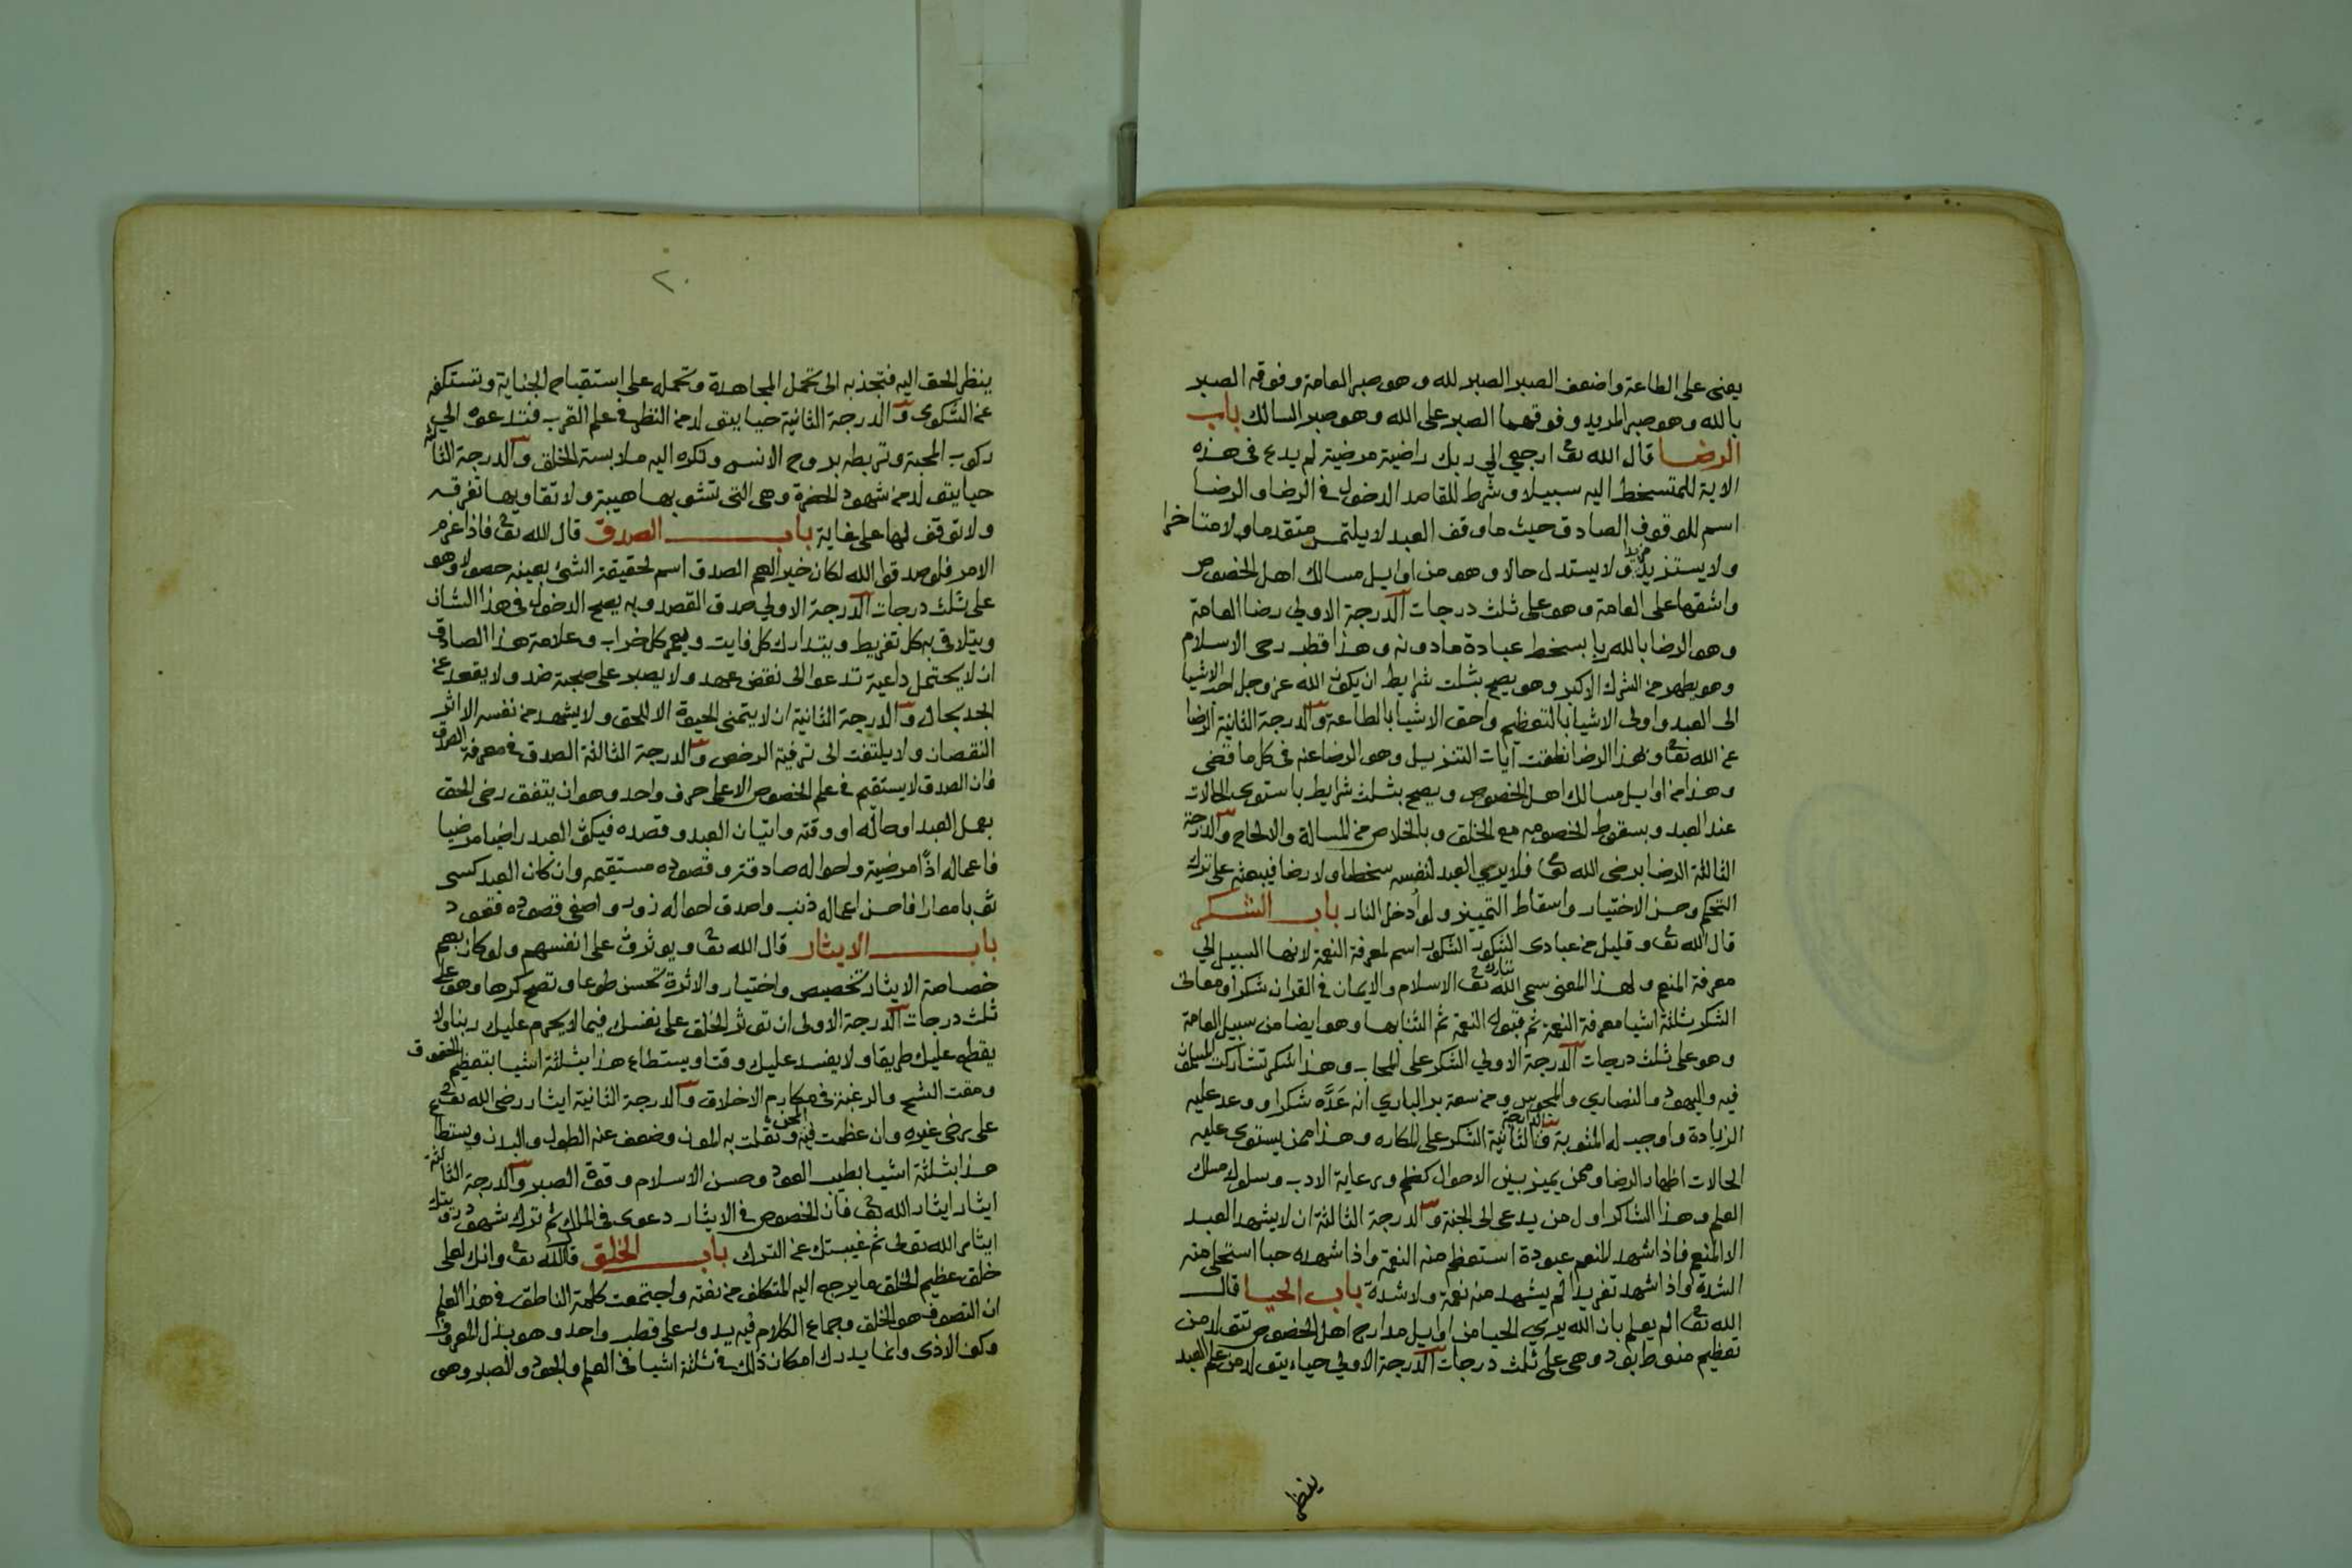 يعنى على الطاعة واضعف الصبر الصبر لله وهو صبر العامة وفوقه الصبر
بالله وهو صبر المريد وفوقهما الصبر على الله وهو صبر السالك باب
الرضا قال الله تعا ارجعي الي ربك راضية مرضية لم يدع في هذه
الاية للمتسخط اليه سبيلا وشرط للقاصد الدخول في الرضا والرضا
اسم للوقوف الصادق حيث ما وقف العبد لا يلتمس متقدما ولا متاخرا
ولا يستزيد مزيدا ولا يستبدل حالا وهو من اوايل مسالك اهل الخصوص
واشقها على العامة وهو على ثلث درجات الدرجة الاولي رضا العامة
وهو الرضا بالله ربا بسخط عبادة ما دونه وهذا قطب رحى الاسلام
وهو يطهر من الشرك الاكبر وهو يصح بثلث شرايط ان يكون الله عز وجل احب الاشيا
الى العبد واولى الاشيا بالتعظيم واحق الاشيا بالطاعة والدرجة الثانية الرضا
عن الله تعا وبهذا الرضا نطقت آيات التنزيل وهو الرضا عنه في كل ما قضى
وهذا من اوايل مسالك اهل الخصوص ويصح بثلث شرايط باستوى الحالات
عند العبد وبسقوط الخصومه مع الخلق وبالخلاص من المسالة والالحاح والدرجة
الثالثة الرضا برضى الله تعا فلا يري العبد لنفسه سخطا ولا رضا فيبعثه على ترك
التحكم وحسن الاختيار واسقاط التمييز ولو أدخل النار باب الشكر
قال الله تعا وقليل من عبادى الشكور الشكور اسم لمعرفة النعمة لانها السبيل الي
معرفة المنعم ولهذا المعنى سمى الله تبارك وتعا الاسلام والايمان في القران شكرا ومعانى
الشكر ثلثة اشيا معرفة النعمة ثم قبول النعمة ثم الثنا بها وهو ايضا من سبيل العامة
وهو على ثلث درجات الدرجة الاولي الشكر على المحاب وهذا شكر تشاركت المسلمون
فيه واليهود والنصاري والمجوس ومن سعة بر الباري انه عَدَّه شكرا ووعد عليه
الزيادة واوجب له المثوبة والدرجة الثانية الشكر على المكاره وهذا ممن يستوى عليه
الحالات اظهار الرضا وممن يميز بين الاحوال كظم ورعاية الادب وسلوك مسلك
العلم وهذا الشاكر اول من يدعى الى الجنة والدرجة الثالثة ان لا يشهد العبد
الا المنعم فاذا شهد المنعم عبودة استعظم منه النعمة واذا شهده حبا استحلى منه
الشدة واذا شهد تفريدا لم يشهد منه نعمة ولا شدة باب الحيا قال
الله تعا الم يعلم بان الله يري الحيا من اوايل مدارج اهل الخصوص تتولد من
تعظيم منوط بود وهى على ثلث درجات الدرجة الاولي حياء يتولد من علم العبد
ينظر
٢٠
ينظر الحق اليه فتجذبه الى تحمل المجاهدة وتحمله على استقباح الجناية وتستكفه
عن الشكوى والدرجة الثانية حيا يتولد من النظر في علم القرب فتدعوه الي
ركوب المحبة وتربطه بروح الانس وتكره اليه ملابسة الخلق والدرجة الثالثة
حيا يتولد من شهود الحضرة وهى التى تشوبها هيبة ولا تقاويها تفرقه
ولا توقف لها على غاية باب الصدق قال الله تعا فاذا عزم
الامر فلو صدقوا الله لكان خيرا لهم الصدق اسم لحقيقة الشئ بعينه حصولا وهو
على ثلث درجات الدرجة الاولي صدق القصد وبه يصح الدخول في هذا الشان
ويتلافى به كل تفريط ويتدارك كل فايت ويعمر كل خراب وعلامة هذا الصادق
ان لا يحتمل داعية تدعوا الى نقض عهد ولا يصبر على صحبة ضد ولا يقعد عن
الجد بحال والدرجة الثانية ان لا يتمنى الحيوة الا للحق ولا يشهد من نفسه الا اثر
النقصان ولا يلتفت الى ترفية الرخص والدرجة الثالثة الصدق في معرفة الصدق
فان الصدق لا يستقيم في علم الخصوص الا على حرف واحد وهو ان يتفق رضى الحق
بعمل العبد او حاله او وقته واتيان العبد وقصده فيكون العبد راضيا مرضيا
فاعماله اذًا مرضية واحواله صادقة وقصوده مستقيمه وان كان العبد كسى
ثوبا معارا فاحسن اعماله ذنب واصدق احواله زور واصفى قصوده قعود
باب الايثار قال الله تعا ويوثرون على انفسهم ولو كان بهم
خصاصة الايثار تخصيص واختيار والاثرة تحسن طوعا وتصح كرها وهو على
ثلث درجات الدرجة الاولى ان توثر الخلق على نفسك فيما لا يحرم عليك دينا ولا
يقطع عليك طريقا ولا يفسد عليك وقتا ويستطاع هذا بثلثة اشيا بتعظيم الحقوق
ومقت الشح والرغبة في مكارم الاخلاق والدرجة الثانية ايثار رضى الله تعا
على رضى غيره وان عظمت فيه المحن وثقلت به المون وضعف عنه الطول والبدن ويستطاع
هذا بثلثة اشيا بطيب العود وحسن الاسلام وقوة الصبر والدرجة الثالثة
ايثار ايثار الله تعا فان الخصوص في الايثار دعوى في الملك ثم ترك شهود رويتك
ايثار الله تعالى ثم غيبتك عن الترك باب الخلق قال الله تعا وانك لعلى
خلق عظيم الخلق ما يرجع اليه المتكلف من نعته واجتمعت كلمة الناطق في هذا العلم
ان التصوف هو الخلق وجماع الكلام فيه يدور على قطب واحد وهو بذل المعروف
وكف الاذى وانما يدرك امكان ذلك في ثلثة اشيا في العلم والجود والصبر وهى